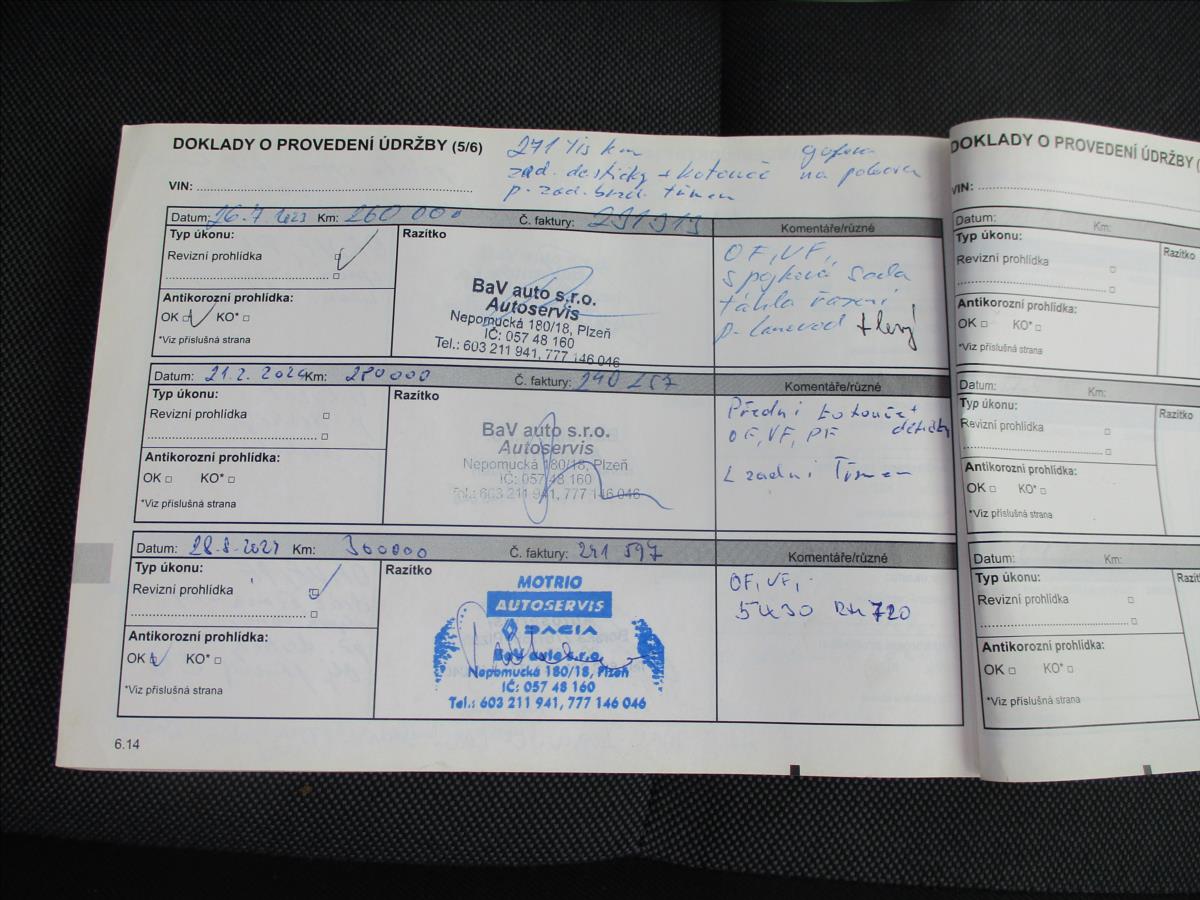 DOKLADY O PROVEDENÍ ÚDRŽBY (5/6)
271 tis km
zad. destičky + kotouče na polovar
p. zad. brzd. třmen
VIN:
Datum: 26.7 2023 Km: 260 000 Č. faktury: 231313 Komentáře/různé
Typ úkonu:
Revizní prohlídka
Antikorozní prohlídka:
OK KO*
*Viz příslušná strana
Razítko
BaV auto s.r.o.
Autoservis
Nepomucká 180/18, Plzeň
IČ: 057 48 160
Tel.: 603 211 941, 777 146 046
OF, VF,
spojková sada
táhla řazení
+ levý
Datum: 21.2. 2024 Km: 280000 Č. faktury: 240 257 Komentáře/různé
Typ úkonu:
Revizní prohlídka
Antikorozní prohlídka:
OK KO*
*Viz příslušná strana
Razítko
BaV auto s.r.o.
Autoservis
Nepomucká 180/18, Plzeň
IČ: 057 48 160
Tel.: 603 211 941, 777 146 046
Přední kotouče +
OF, VF, PF destičky
L zadní Třmen
Datum: 28.8.2024 Km: 300000 Č. faktury: 241 597 Komentáře/různé
Typ úkonu:
Revizní prohlídka
Antikorozní prohlídka:
OK KO*
*Viz příslušná strana
Razítko
MOTRIO
AUTOSERVIS
DACIA
BaV auto s.r.o.
Nepomucká 180/18, Plzeň
IČ: 057 48 160
Tel.: 603 211 941, 777 146 046
OF, VF,
5W30 RN 720
6.14
DOKLADY O PROVEDENÍ ÚDRŽBY (
VIN:
Datum: Km:
Typ úkonu:
Revizní prohlídka
Antikorozní prohlídka:
OK KO*
*Viz příslušná strana
Razítko
Datum: Km:
Typ úkonu:
Revizní prohlídka
Antikorozní prohlídka:
OK KO*
*Viz příslušná strana
Razítko
Datum: Km:
Typ úkonu:
Revizní prohlídka
Antikorozní prohlídka:
OK KO*
*Viz příslušná strana
Razít